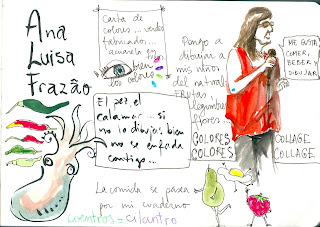 Ana
Luisa
Frazão
Carta de
colores... verdes
fabricados...
acuarela
bien
los colores
El pez, el
calamar... si
no lo dibujas bien
no se enfada
contigo...
Pongo a
dibujar a
mis niños
del natural
FRUTAS
legumbres
flores
ME GUSTA
COMER,
BEBER y
DIBUJAR
COLORES COLLAGE
COLORES COLLAGE
La comida se pasea
por mi cuaderno
coentros = cilantro